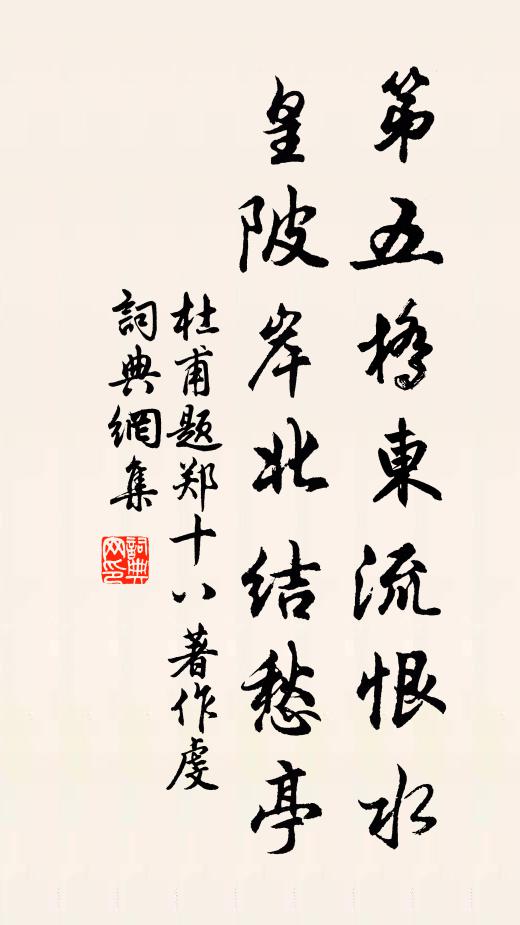 第五橋東流恨水
皇陂岸北結愁亭
杜甫題郑十八著作虔
詞典網集
詞典
网印